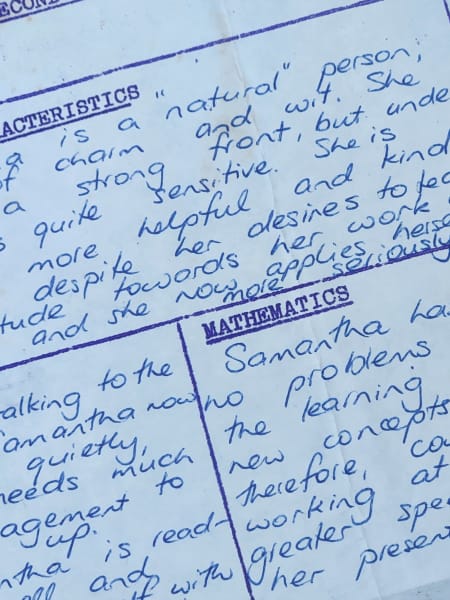 ECOND
ACTERISTICS
a is a "natural" person,
of charm and wit. She
a strong front, but unde
s quite sensitive. She is
more helpful and kind
despite her desires to tea
tude towards her work
and she now applies herse
more seriously
alking to the
amantha now
quietly,
needs much
agement to
up.
ntha is read-
ell and
with
MATHEMATICS
Samantha ha
no problems
the learning
new concepts
therefore, cou
working at
greater spe
her present